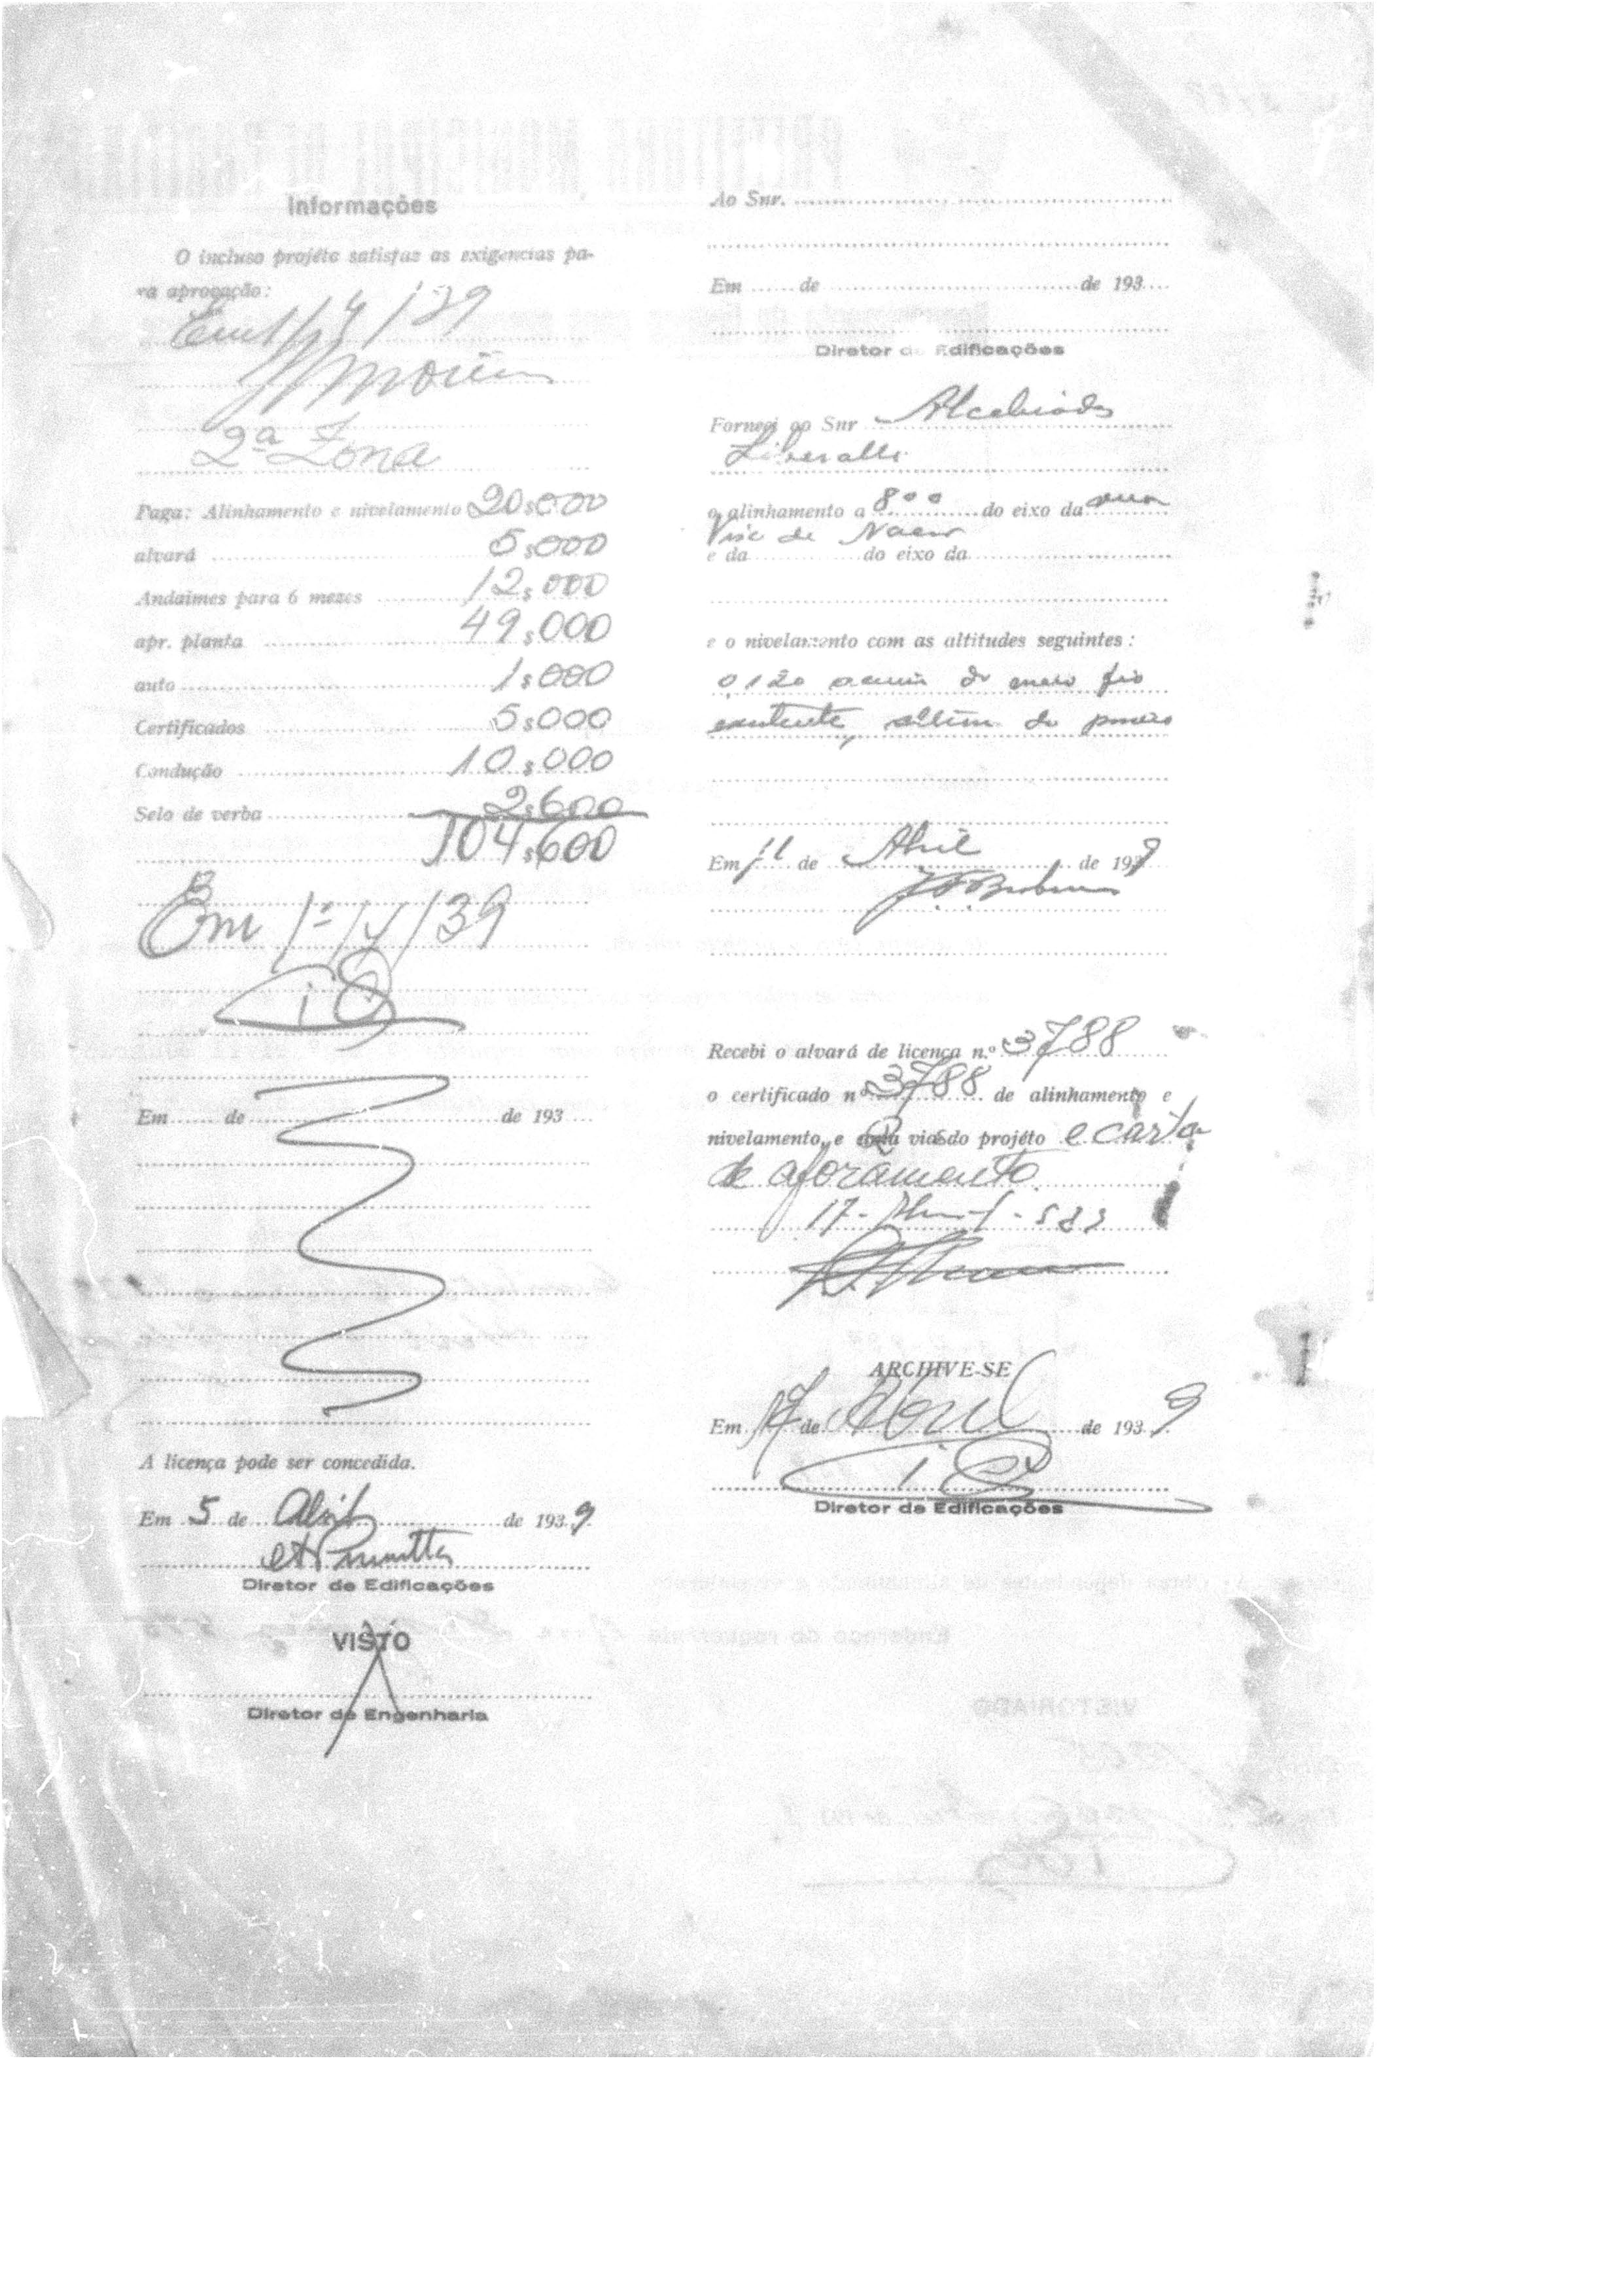 Informações
O incluso projéto satisfaz as exigencias pa-
ra aprovação:
Em 1/4/39
2ª Zona
Paga: Alinhamento e nivelamento 20$000
alvará 5$000
Andaimes para 6 mezes 12$000
apr. planta 49$000
auto 1$000
Certificados 5$000
Condução 10$000
Selo de verba 2$600
104$600
Em 1º/4/39
Em de de 193
A licença pode ser concedida.
Em 5 de Abril de 1939
Diretor de Edificações
VISTO
Diretor de Engenharia
Ao Snr.
Em de de 193
Diretor de Edificações
Forneci ao Snr Alcebiades
Liberalli
o alinhamento a 8 00 do eixo da rua
Visc de Nacar
e da do eixo da
e o nivelamento com as altitudes seguintes:
0,120 acima do meio fio
existente, além do passeio
Em 11 de Abril de 1939
Recebi o alvará de licença n.º 3788
o certificado nº 3788 de alinhamento e
nivelamento, e 2 vias do projéto e carta
de aforamento.
17-
ARCHIVE-SE
Em 17 de Abril de 1939
Diretor de Edificações
PREFEITURA MUNICIPAL DE
VISTORIADO